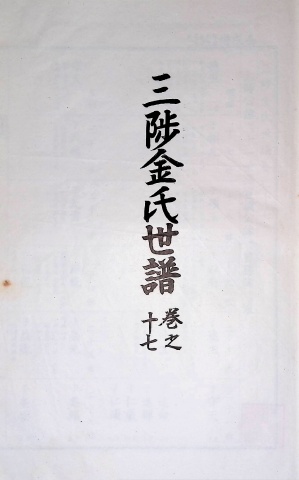 三陟金氏世譜
巻之
十七